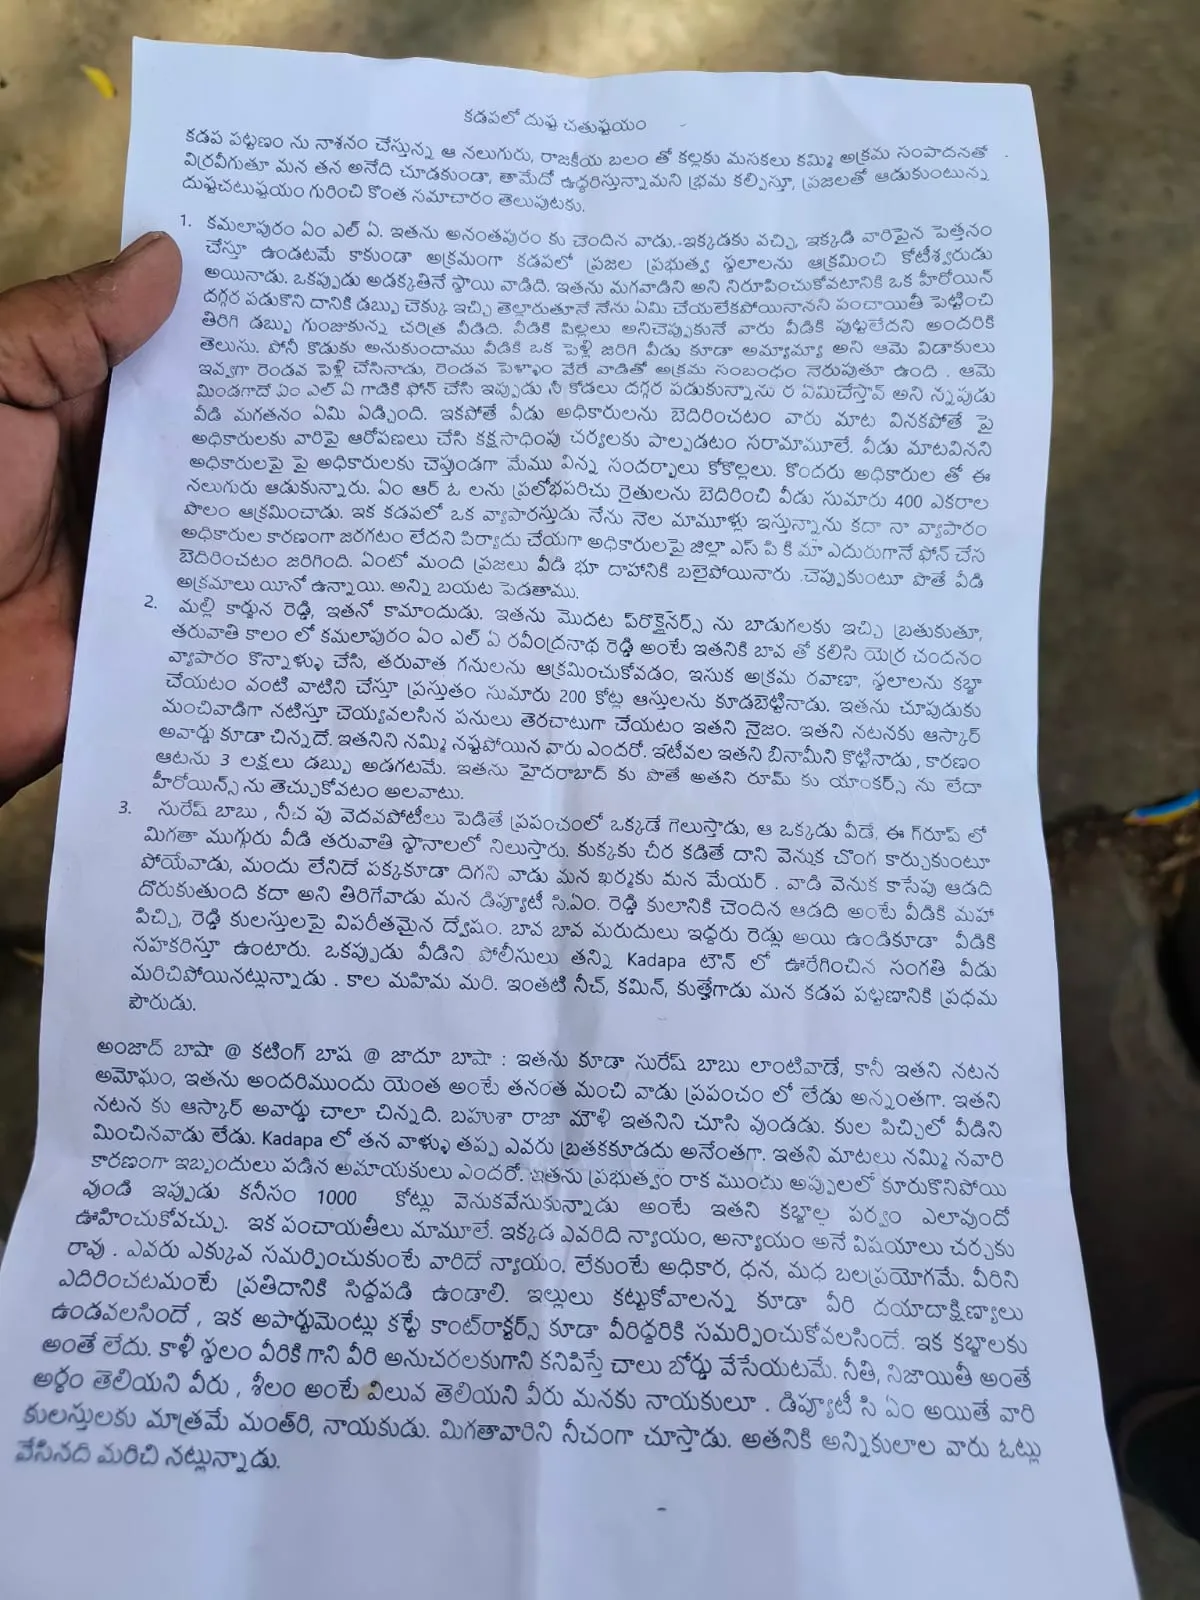 కడపలో దుష్ట చతుష్టయం
కడప పట్టణం ను నాశనం చేస్తున్న ఆ నలుగురు, రాజకీయ బలం తో కల్లకు మసకలు కమ్మి అక్రమ సంపాదనతో
విర్రవీగుతూ మన తన అనేది చూడకుండా, తామేదో ఉద్ధరిస్తున్నామని భ్రమ కల్పిస్తూ, ప్రజలతో ఆడుకుంటున్న
దుష్టచటుష్టయం గురించి కొంత సమాచారం తెలుపుటకు.
1. కమలాపురం ఏం ఎల్ ఏ. ఇతను అనంతపురం కు చెందిన వాడు. ఇక్కడకు వచ్చి, ఇక్కడి వారిపైన పెత్తనం
చేస్తూ ఉండటమే కాకుండా అక్రమంగా కడపలో ప్రజల ప్రభుత్వ స్థలాలను ఆక్రమించి కోటీశ్వరుడు
అయినాడు. ఒకప్పుడు అడక్కతినే స్థాయి వాడిది. ఇతను మగవాడిని అని నిరూపించుకోవటానికి ఒక హీరోయిన్
దగ్గర పడుకొని దానికి డబ్బు చెక్కు ఇచ్చి తెల్లారుతూనే నేను ఏమి చేయలేకపోయినానని పంచాయితీ పెట్టించి
తిరిగి డబ్బు గుంజుకున్న చరిత్ర వీడిది. వీడికి పిల్లలు అనిచెప్పుకునే వారు వీడికి పుట్టలేదని అందరికి
తెలుసు. పోనీ కొడుకు అనుకుందాము వీడికి ఒక పెళ్లి జరిగి వీడు కూడా అమ్యామ్యా అని ఆమె విడాకులు
ఇవ్వగా రెండవ పెళ్లి చేసినాడు, రెండవ పెళ్ళాం వేరే వాడితో అక్రమ సంబంధం నెరుపుతూ ఉంది . ఆమె
మిండగాదే ఏం ఎల్ ఏ గాడికి ఫోన్ చేసి ఇప్పుడు నీ కోడలు దగ్గర పడుకున్నాను ర ఏమిచేస్తావ్ అని న్నపుడు
వీడి మగతనం ఏమి ఏడ్చింది. ఇకపోతే వీడు అధికారులను బెదిరించటం వారు మాట వినకపోతే పై
అధికారులకు వారిపై ఆరోపణలు చేసి కక్షసాధింపు చర్యలకు పాల్పడటం సరామామూలే. వీడు మాటవినని
అధికారులపై పై అధికారులకు చెప్తుండగా మేము విన్న సందర్భాలు కోకొల్లలు. కొందరు అధికారుల తో ఈ
నలుగురు ఆడుకున్నారు. ఏం ఆర్ ఓ లను ప్రలోభపరిచు రైతులను బెదిరించి వీడు సుమారు 400 ఎకరాల
పొలం ఆక్రమించాడు. ఇక కడపలో ఒక వ్యాపారస్తుడు నేను నెల మామూళ్లు ఇస్తున్నాను కదా నా వ్యాపారం
అధికారుల కారణంగా జరగటం లేదని పిర్యాదు చేయగా అధికారులపై జిల్లా ఎస్ పి కి మా ఎదురుగానే ఫోన్ చేసి
బెదిరించటం జరిగింది. ఏంటో మంది ప్రజలు వీడి భూ దాహానికి బలైపోయినారు .చెప్పుకుంటూ పొతే వీడి
అక్రమాలు యినో ఉన్నాయి. అన్ని బయట పెడతాము.
2. మల్లి కార్జున రెడ్డి, ఇతనో కామాందుడు. ఇతను మొదట ప్రొక్లైనర్స్ ను బాడుగలకు ఇచ్చి బ్రతుకుతూ,
తరువాతి కాలం లో కమలాపురం ఏం ఎల్ ఏ రవీంద్రనాథ రెడ్డి అంటే ఇతనికి బావ తో కలిసి యెర్ర చందనం
వ్యాపారం కొన్నాళ్ళు చేసి, తరువాత గనులను ఆక్రమించుకోవడం, ఇసుక అక్రమ రవాణా, స్థలాలను కబ్జా
చేయటం వంటి వాటిని చేస్తూ ప్రస్తుతం సుమారు 200 కోట్ల ఆస్తులను కూడబెట్టినాడు. ఇతను చూపుడుకు
మంచివాడిగా నటిస్తూ చెయ్యవలసిన పనులు తెరచాటుగా చేయటం ఇతని నైజం. ఇతని నటనకు ఆస్కార్
అవార్డు కూడా చిన్నదే. ఇతనిని నమ్మి నష్టపోయిన వారు ఎందరో. ఇటీవల ఇతని బినామీని కొట్టినాడు , కారణం
ఆటను 3 లక్షలు డబ్బు అడగటమే. ఇతను హైదరాబాద్ కు పొతే అతని రూమ్ కు యాంకర్స్ ను లేదా
హీరోయిన్స్ ను తెచ్చుకోవటం అలవాటు.
3. సురేష్ బాబు , నీచ పు వెదవపోటీలు పెడితే ప్రపంచంలో ఒక్కడే గెలుస్తాడు, ఆ ఒక్కడు వీడే, ఈ గ్రూప్ లో
మిగతా ముగ్గురు వీడి తరువాతి స్థానాలలో నిలుస్తారు. కుక్కకు చీర కడితే దాని వెనుక చొంగ కార్చుకుంటూ
పోయేవాడు, మందు లేనిదే పక్కకూడా దిగని వాడు మన ఖర్మకు మన మేయర్ . వాడి వెనుక కాసేపు ఆడది
దొరుకుతుంది కదా అని తిరిగేవాడు మన డిప్యూటీ సి.ఏం. రెడ్డి కులానికి చెందిన ఆడది అంటే వీడికి మహా
పిచ్చి, రెడ్డి కులస్తులపై విపరీతమైన ద్వేషం. బావ బావ మరుదులు ఇద్దరు రెడ్లు అయి ఉండికూడా వీడికి
సహకరిస్తూ ఉంటారు. ఒకప్పుడు వీడిని పోలీసులు తన్ని Kadapa టౌన్ లో ఊరేగించిన సంగతి వీడు
మరిచిపోయినట్లున్నాడు . కాల మహిమ మరి. ఇంతటి నీచ్, కమిన్, కుత్తేగాడు మన కడప పట్టణానికి ప్రధమ
పౌరుడు.
అంజాద్ బాషా @ కటింగ్ బాష @ జాదూ బాషా : ఇతను కూడా సురేష్ బాబు లాంటివాడే, కానీ ఇతని నటన
అమోఘం, ఇతను అందరిముందు యెంత అంటే తనంత మంచి వాడు ప్రపంచం లో లేడు అన్నంతగా. ఇతని
నటన కు ఆస్కార్ అవార్డు చాలా చిన్నది. బహుశా రాజా మౌళి ఇతనిని చూసి వుండడు. కుల పిచ్చిలో వీడిని
మించినవాడు లేడు. Kadapa లో తన వాళ్ళు తప్ప ఎవరు బ్రతకకూడదు అనేంతగా. ఇతని మాటలు నమ్మి నవారి
కారణంగా ఇబ్బందులు పడిన అమాయకులు ఎందరో. ఇతను ప్రభుత్వం రాక ముందు అప్పులలో కూరుకొనిపోయి
వుండి ఇప్పుడు కనీసం 1000 కోట్లు వెనుకవేసుకున్నాడు అంటే ఇతని కబ్జాల పర్వం ఎలావుందో
ఊహించుకోవచ్చు. ఇక పంచాయతీలు మామూలే. ఇక్కడ ఎవరిది న్యాయం, అన్యాయం అనే విషయాలు చర్చకు
రావు . ఎవరు ఎక్కువ సమర్పించుకుంటే వారిదే న్యాయం. లేకుంటే అధికార, ధన, మధ బలప్రయోగమే. వీరిని
ఎదిరించటమంటే ప్రతిదానికి సిద్ధపడి ఉండాలి. ఇల్లులు కట్టుకోవాలన్న కూడా వీరి దయాదాక్షిణ్యాలు
ఉండవలసిందే , ఇక అపార్టుమెంట్లు కట్టే కాంట్రాక్టర్స్ కూడా వీరిద్దరికి సమర్పించుకోవలసిందే. ఇక కబ్జాలకు
అంతే లేదు. కాళీ స్థలం వీరికి గాని వీరి అనుచరలకుగాని కనిపిస్తే చాలు బోర్డు వేసేయటమే. నీతి, నిజాయితీ అంతే
అర్థం తెలియని వీరు , శీలం అంటే విలువ తెలియని వీరు మనకు నాయకులూ . డిప్యూటీ సి ఏం అయితే వారి
కులస్తులకు మాత్రమే మంత్రి, నాయకుడు. మిగతావారిని నీచంగా చూస్తాడు. అతనికి అన్నికులాల వారు ఓట్లు
వేసినది మరిచి నట్లున్నాడు.